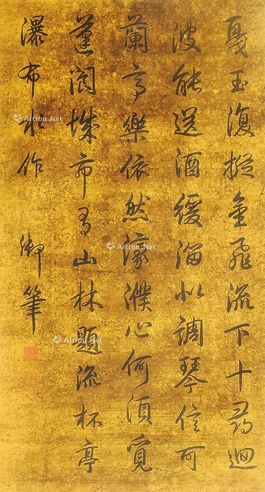 戛玉復摐金飛流下十尋迴
波能送酒緩溜以調琴信可
蘭亭樂依然濠濮心何須覓
蓬閬城市有山林題流杯亭
瀑布水作 御筆
Artron.Net
Artron.Net
Artron.Net
Artron.Net